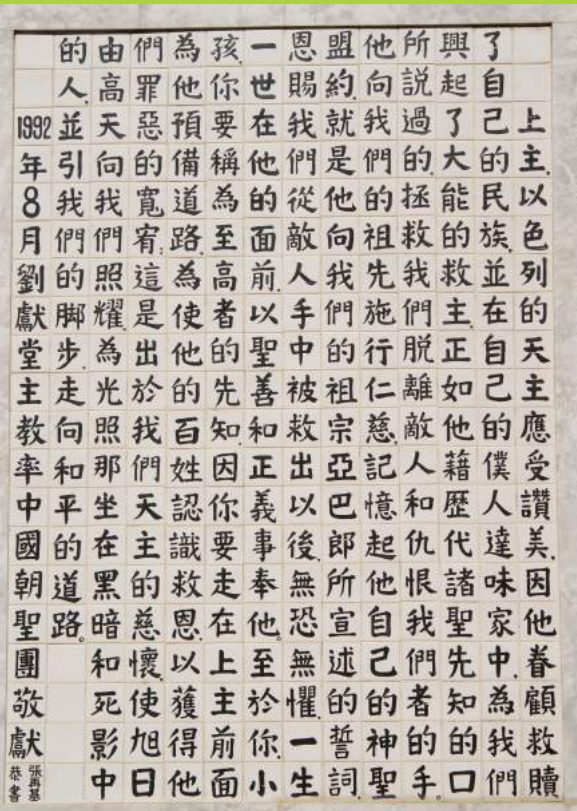 上主,以色列的天主應受讚美,因他眷顧救贖
了自己的民族,並在自己的僕人達味家中,為我們
興起了大能的救主,正如他藉歷代諸聖先知的口
所說過的,拯救我們脫離敵人和仇恨我們者的手。
他向我們的祖先施行仁慈,記憶起他自己的神聖
盟約,就是他向我們的祖宗亞巴郎所宣述的誓詞,
恩賜我們從敵人手中被救出以後,無恐無懼,一生
一世在他的面前,以聖善和正義事奉他。至於你小
孩,你要稱為至高者的先知,因你要走在上主前面
為他預備道路,為使他的百姓認識救恩,以獲得他
們罪惡的寬宥;這是出於我們天主的慈懷,使旭日
由高天向我們照耀,為光照那坐在黑暗和死影中
的人,並引我們的脚步,走向和平的道路。
1992年8月劉獻堂主教率中國朝聖團敬獻
張再基
恭書